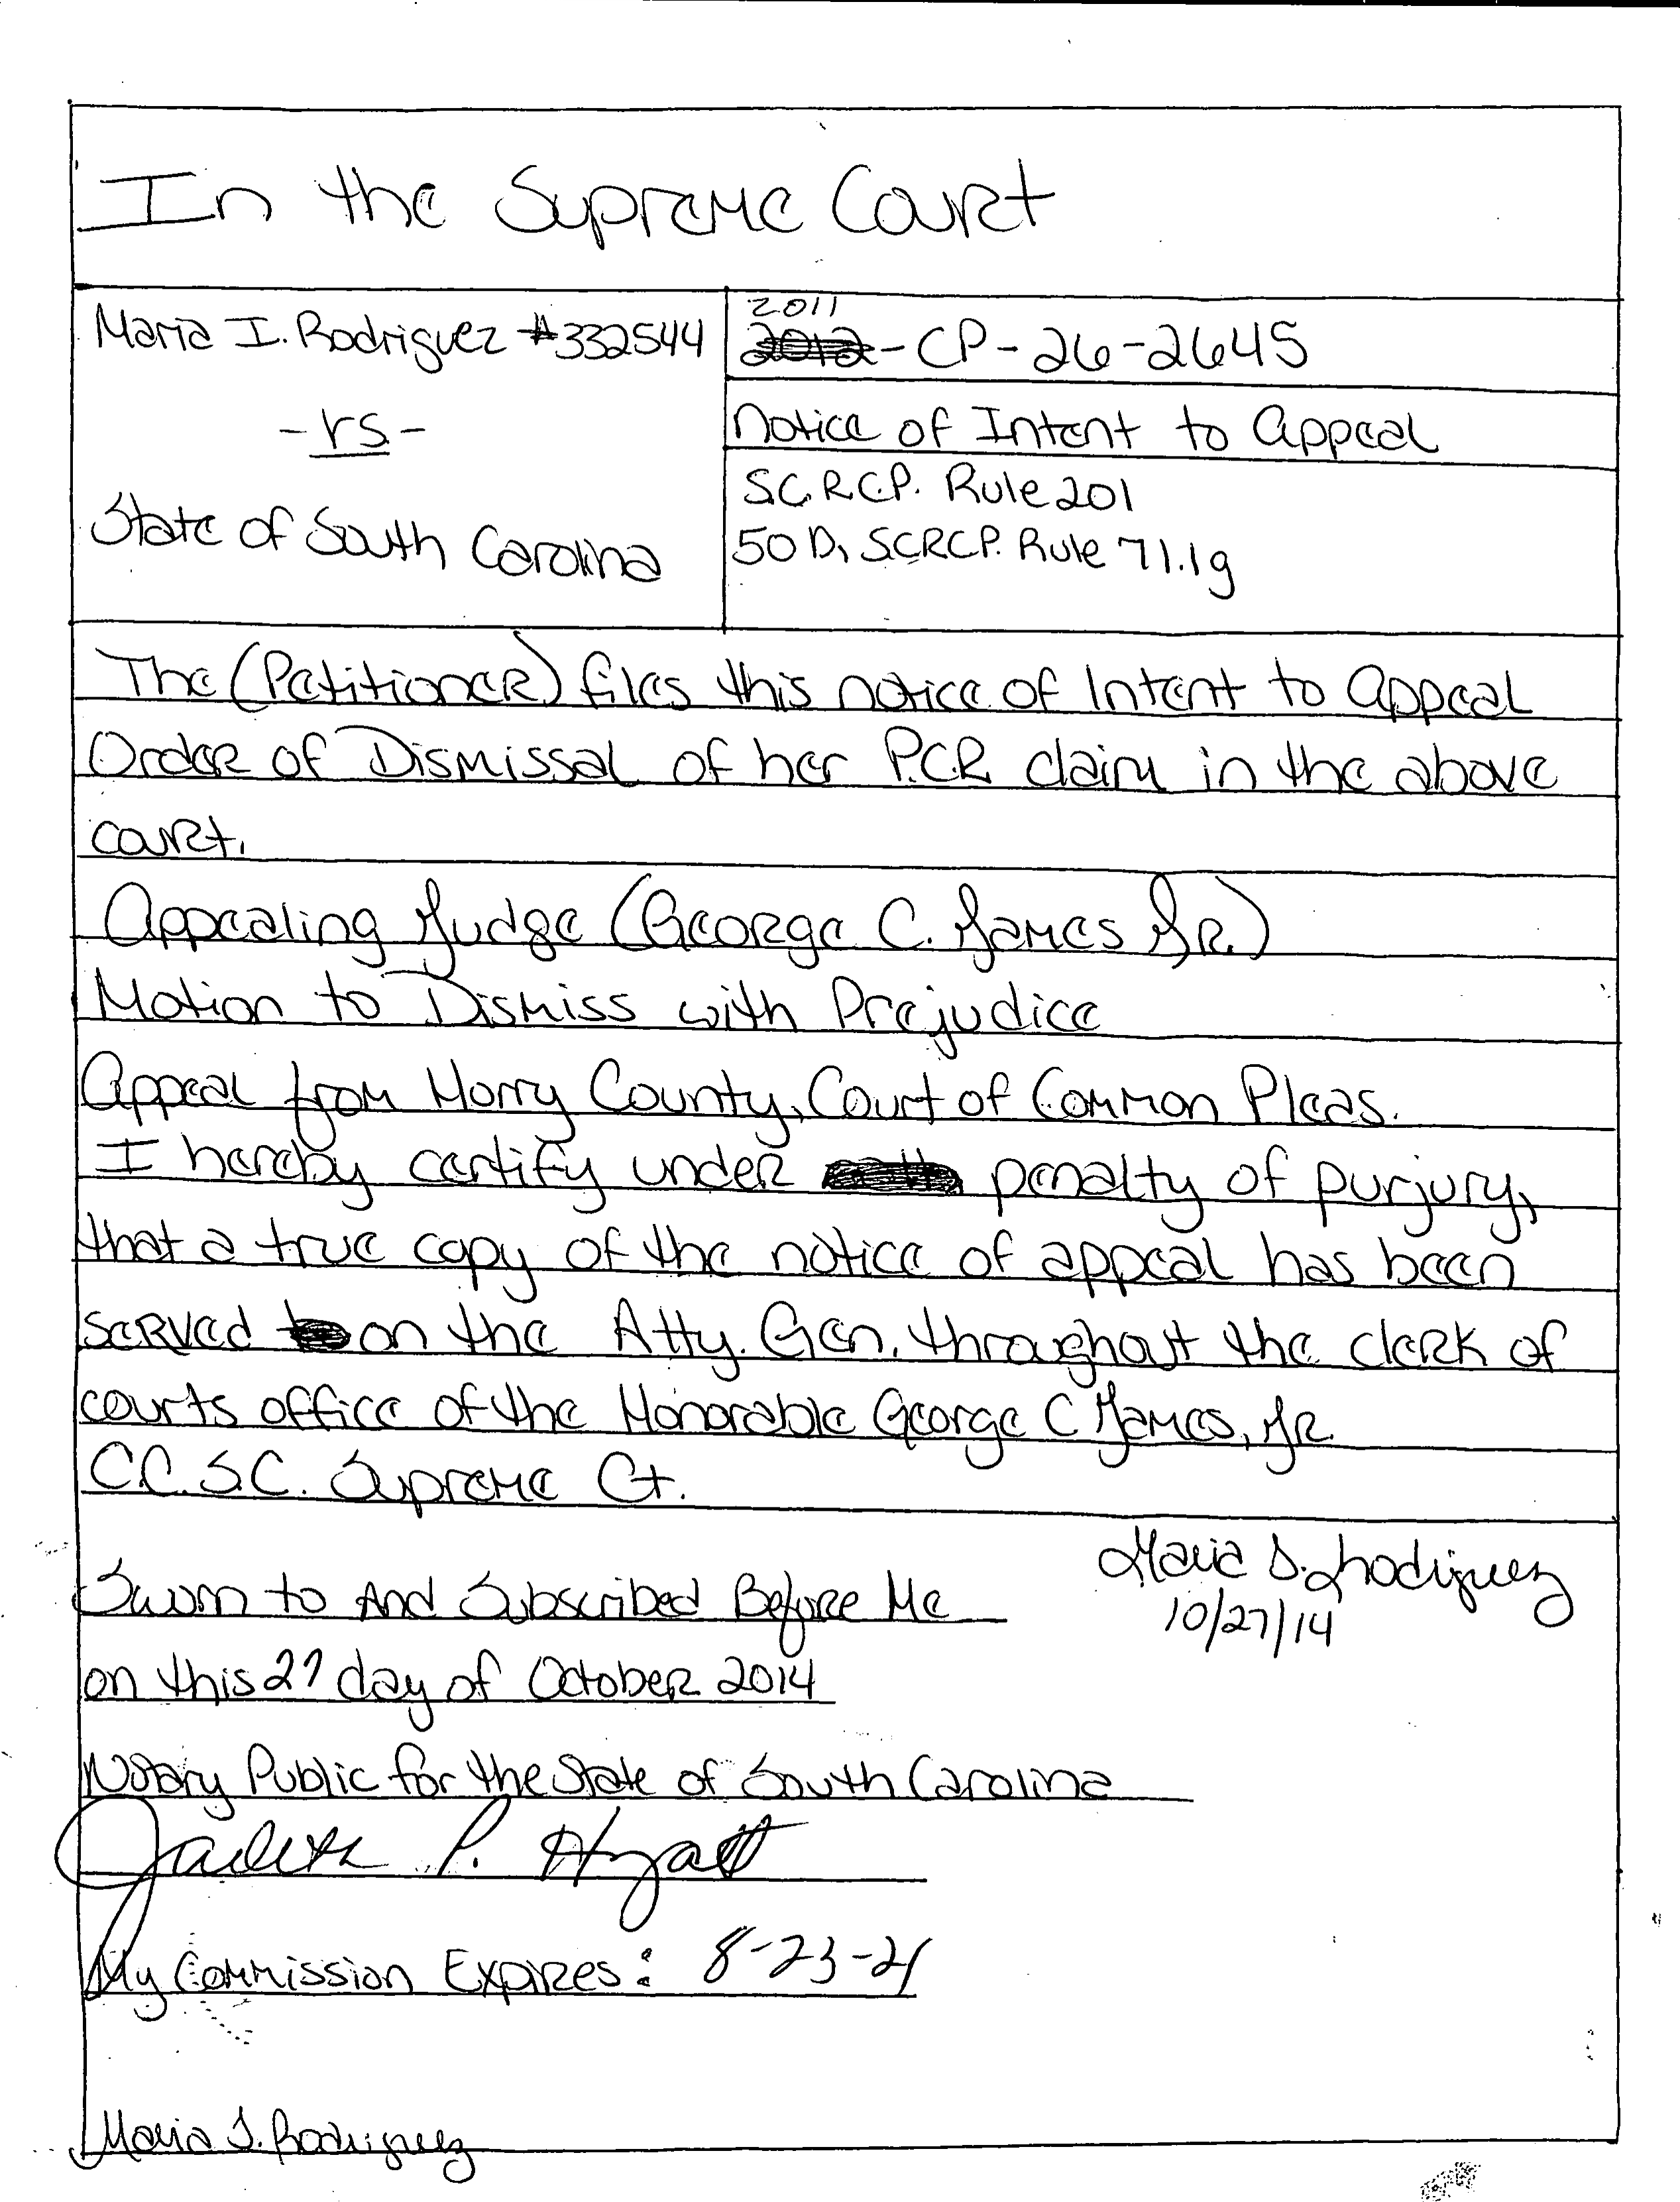 In the Supreme Court
Maria I. Rodriguez #332544
-vs-
State of South Carolina
2011
2012-CP-26-2645
Notice of Intent to Appeal
S.C.R.C.P. Rule 201
50 D, SCRCP. Rule 71.1g
The (Petitioner) files this notice of Intent to Appeal
Order of Dismissal of her P.C.R. claim in the above
court.
Appealing Judge (George C. James Jr.)
Motion to Dismiss with Prejudice
Appeal from Horry County, Court of Common Pleas.
I hereby certify under penalty of purjury,
that a true copy of the notice of appeal has been
served on the Atty. Gen. throughout the clerk of
courts office of the Honorable George C James, Jr.
C.C. S.C. Supreme Ct.
Maria I. Rodriguez
10/27/14
Sworn to And Subscribed Before Me
on this 27 day of October 2014
Notary Public for the State of South Carolina
Judith P. Hyatt
My Commission Expires: 8-23-21
Maria I. Rodriguez